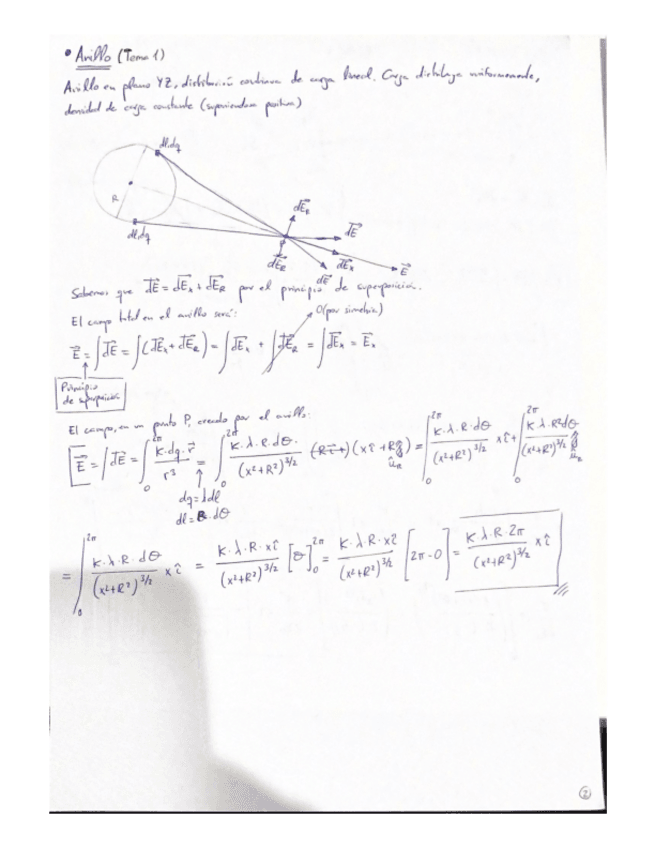 • Anillo (Tema 1)
Anillo en plano YZ, distribución continua de carga lineal. Carga distribuya uniformemente,
densidad de carga constante (suponiendum positiva)
dl,dq
R
dl,dq
dE_R
dE
dE_R
dE_x
dE
E
Sabemos que dE = dE_x + dE_R por el principio de superposición.
0 (por simetría)
El campo total en el anillo será:
E = ∫dE = ∫(dE_x + dE_R) = ∫dE_x + ∫dE_R = ∫dE_x = E_x
Principio
de superposición
El campo, en un punto P, creado por el anillo:
E = ∫dE = ∫₀^2π K·dq·r / r³ = ∫₀^2π K·λ·R·dθ / (x²+R²)^3/2 (xî + R û_R) = ∫₀^2π K·λ·R·dθ / (x²+R²)^3/2 xî + ∫₀^2π K·λ·R²dθ / (x²+R²)^3/2 û_R
dq = λdl
dl = R·dθ
= ∫₀^2π K·λ·R·dθ / (x²+R²)^3/2 xî = K·λ·R·xî / (x²+R²)^3/2 [θ]₀^2π = K·λ·R·xî / (x²+R²)^3/2 [2π-0] = K·λ·R·2π / (x²+R²)^3/2 xî
2